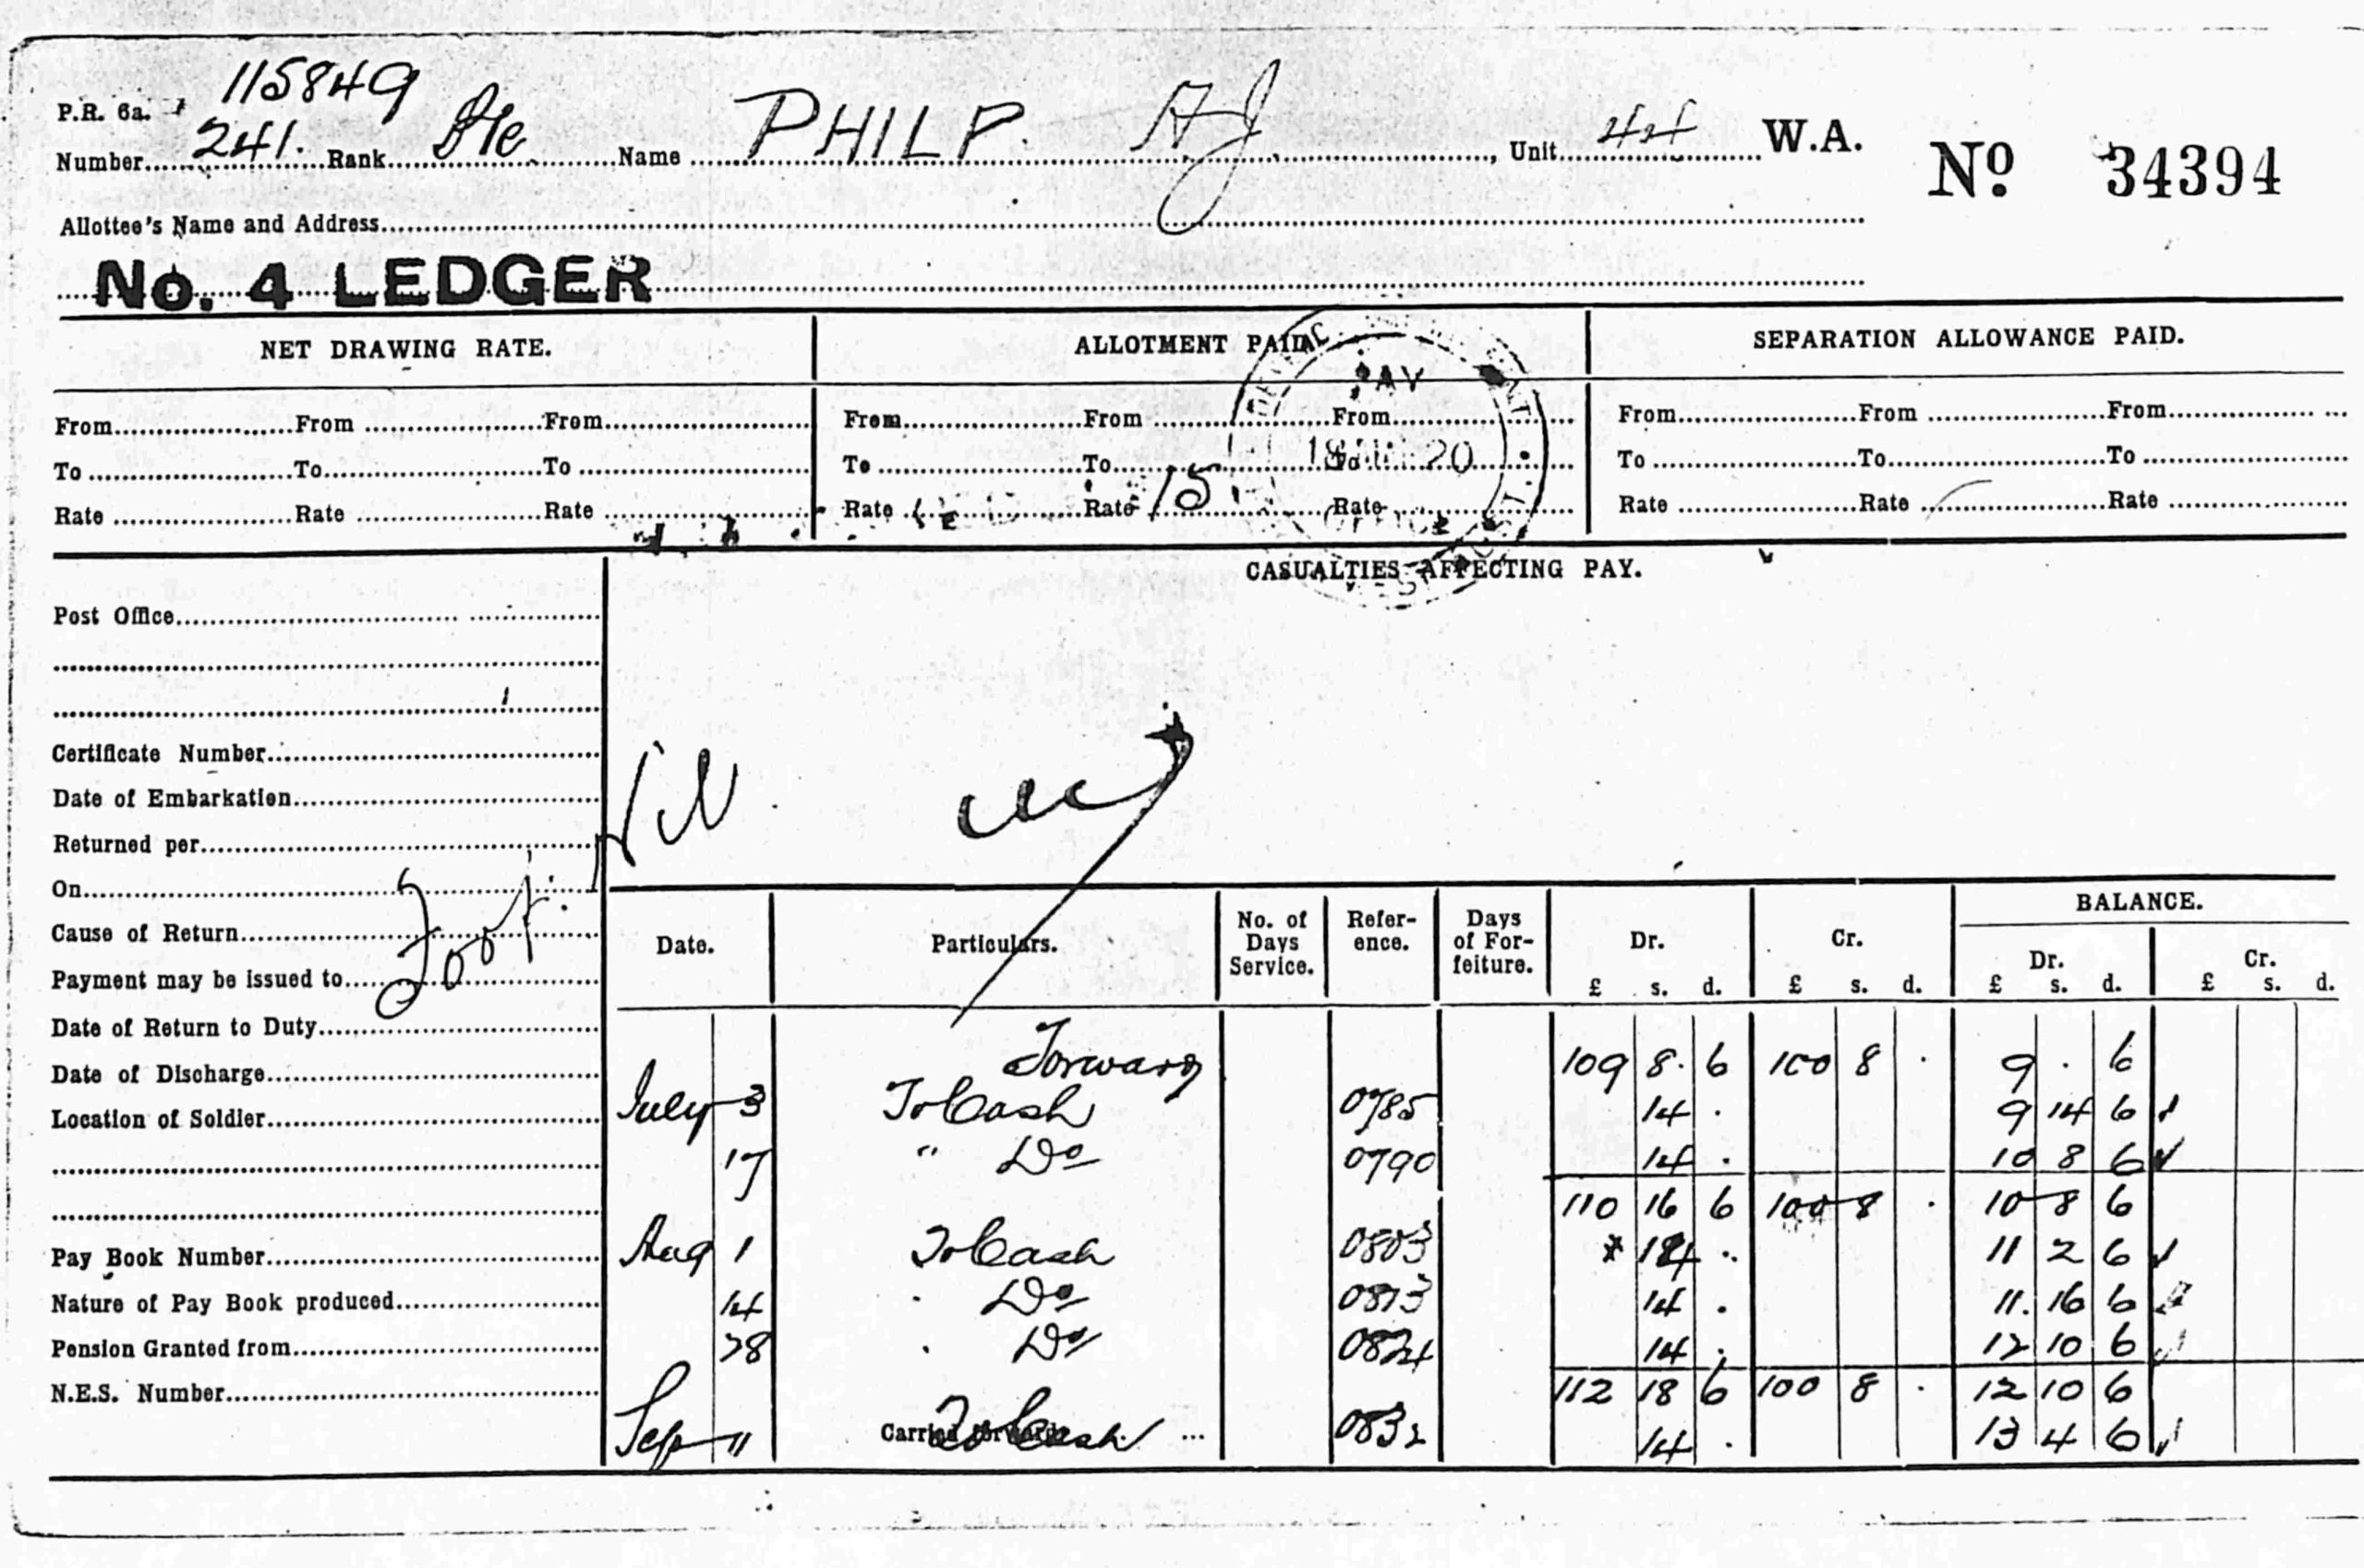 115849
P.R. 6a.
Number 241. Rank Pte Name PHILP. A J Unit 44 W.A.
No 34394
Allottee's Name and Address
No. 4 LEDGER
NET DRAWING RATE. ALLOTMENT PAID. SEPARATION ALLOWANCE PAID.
PAY
From From From From From From From From From
18 20
To To To To To To To To To
Rate Rate Rate Rate Rate 15 Rate Rate Rate Rate
OFFICE
CASUALTIES AFFECTING PAY.
Post Office
Certificate Number
Date of Embarkation
Returned per
On
Cause of Return
Payment may be issued to
Date of Return to Duty
Date of Discharge
Location of Soldier
Pay Book Number
Nature of Pay Book produced
Pension Granted from
N.E.S. Number
Foot. Nil
Date. Particulars. No. of Days Service. Refer- ence. Days of For- feiture. Dr. Cr. BALANCE.
Dr. Cr.
£ s. d. £ s. d. £ s. d. £ s. d.
Forward 109 8. 6 100 8 . 9 . 6
July 3 To Cash 0785 14 . 9 14 6
17 " Do 0790 14 . 10 8 6
110 16 6 100 8 . 10 8 6
Aug 1 To Cash 0803 14 . 11 2 6
14 " Do 0813 14 . 11. 16 6
28 " Do 0824 14 . 12 10 6
112 18 6 100 8 . 12 10 6
Sep 11 Carried forward To Cash ... 0832 14 . 13 4 6